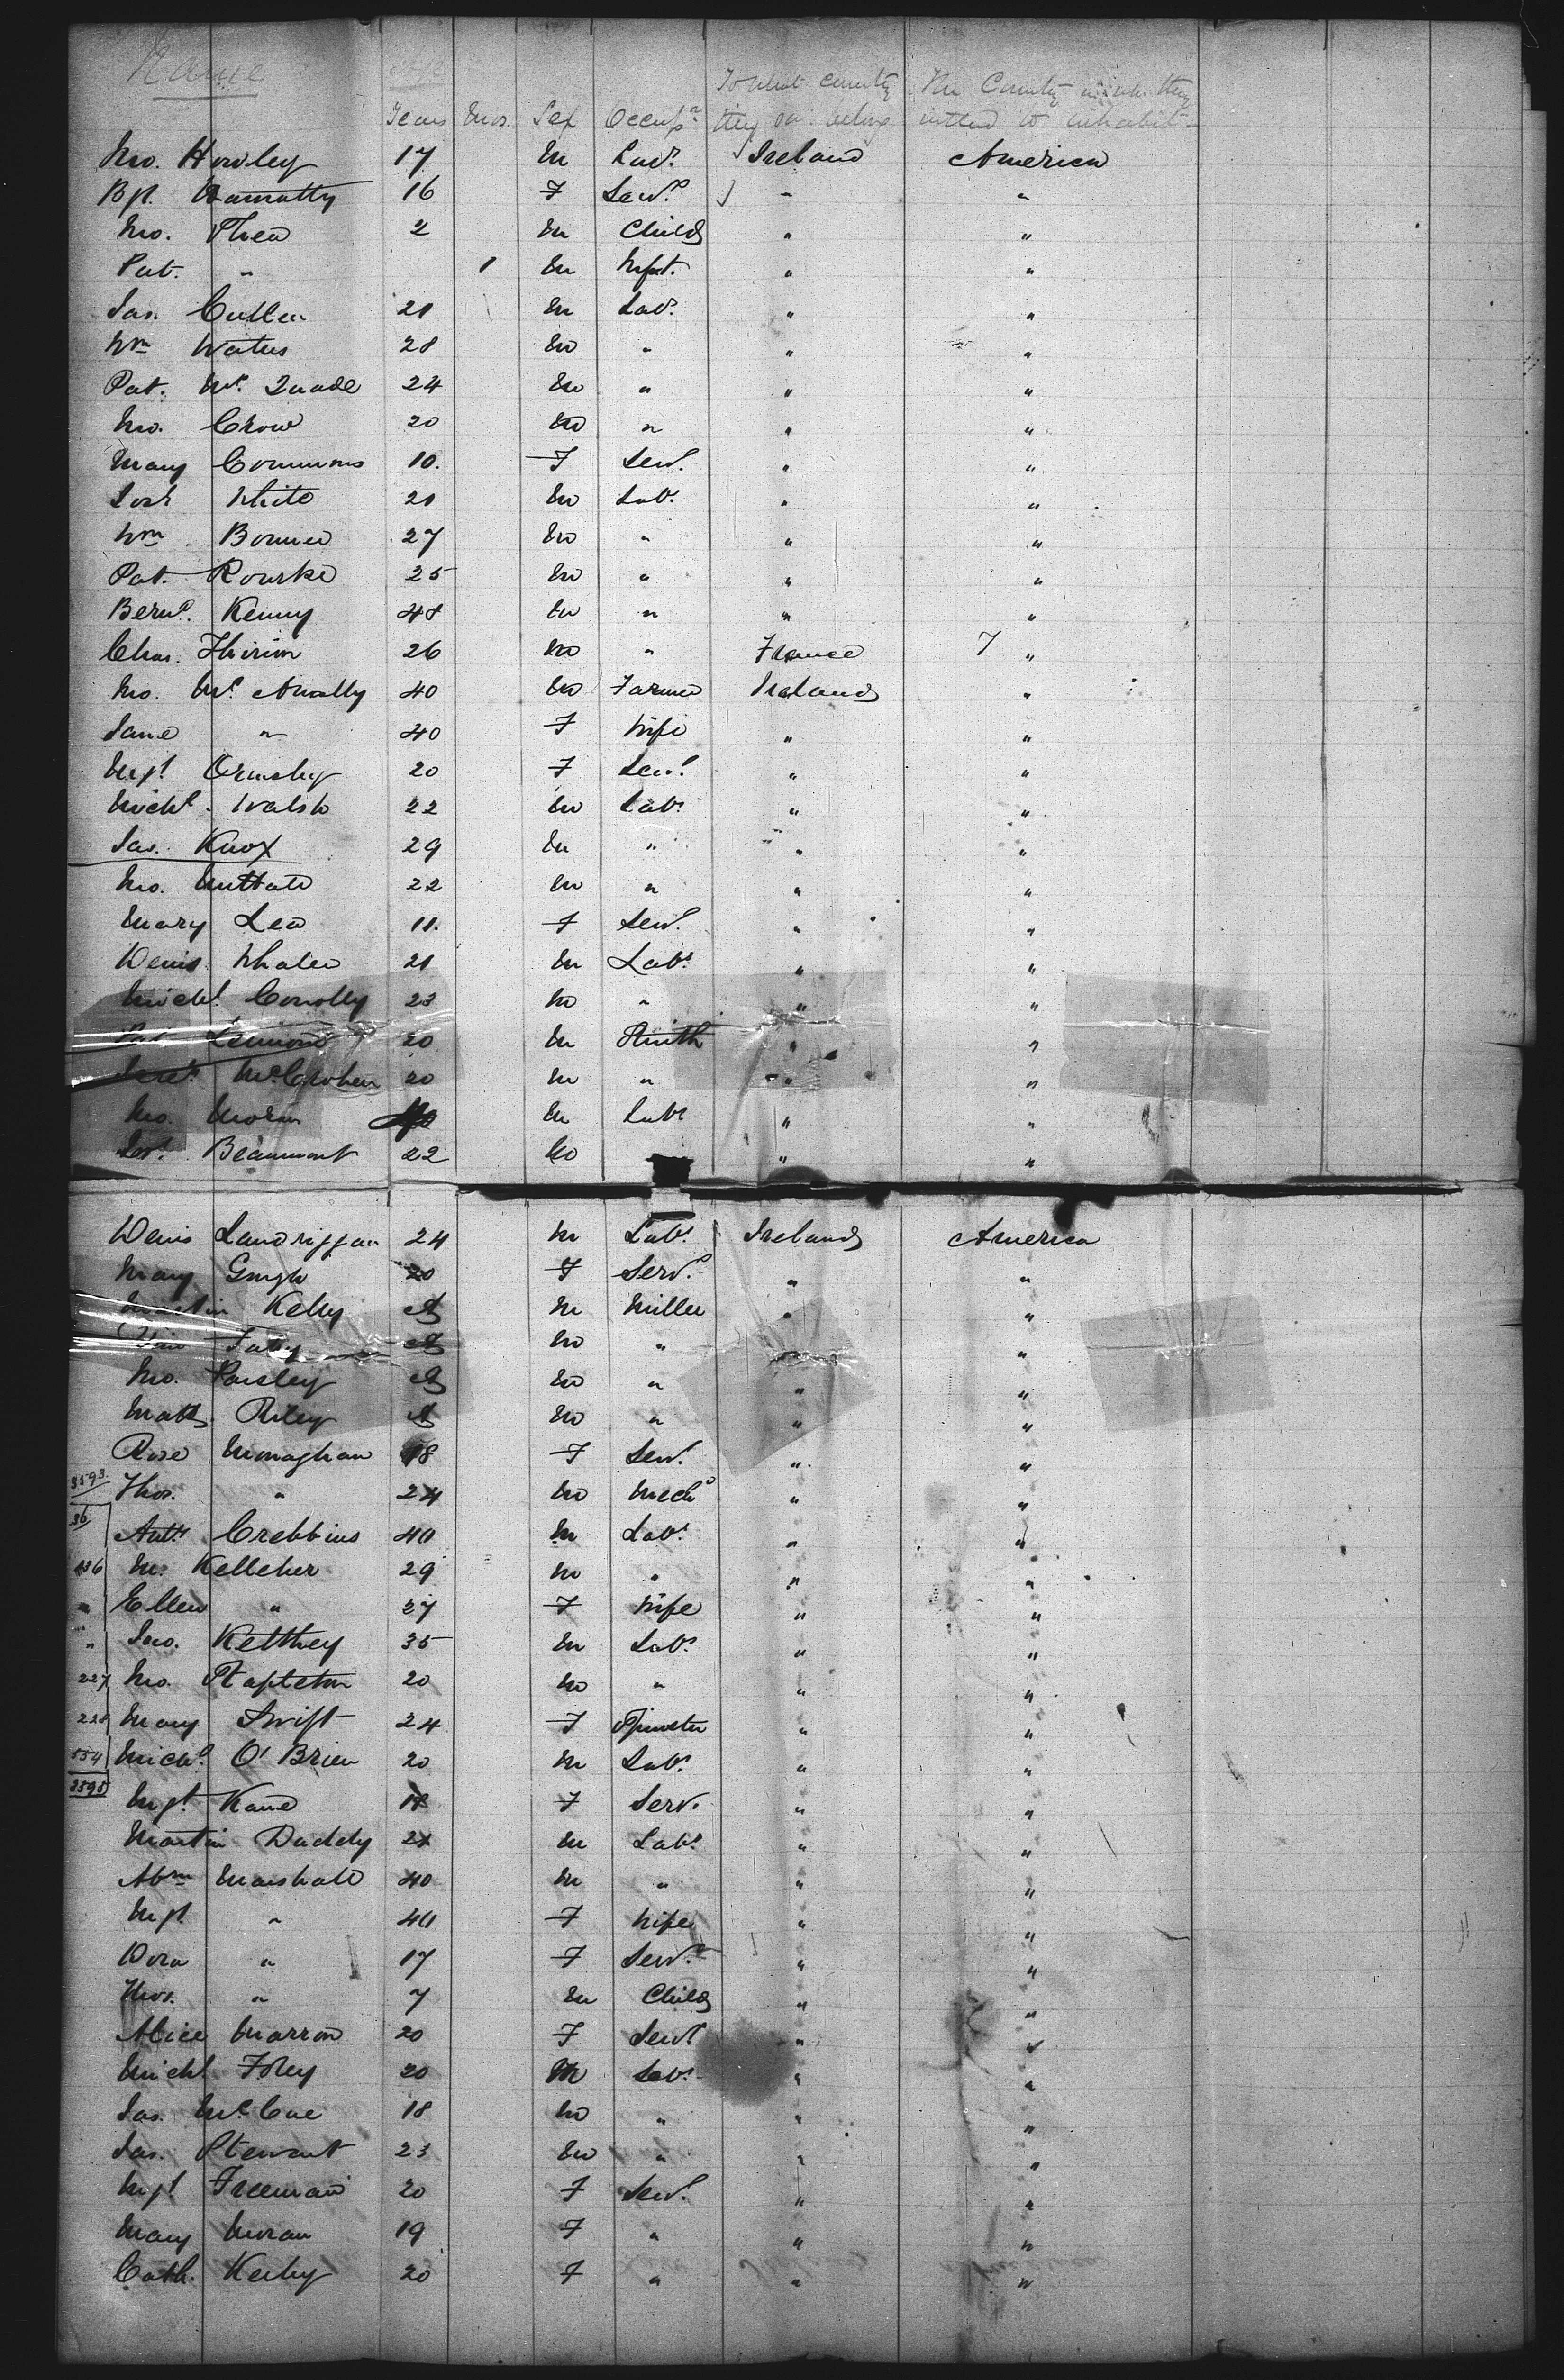 Name Age To what country The Country in wh. they
Years Mos. Sex Occupn they belong intend to inhabit
Jno. Howley 17 M Labr. Ireland America
Bgt. 16 F Servt. " "
Jno. Shea 2 M Child " "
Pat. " 1 M Infnt. " "
Jas. Cullen 21 M Labr. " "
Wm Waters 28 M " " "
Pat. Mc. Quade 24 M " " "
Jno. Crow 20 M " " "
Mary Commons 10. F Servt. " "
Josh White 21 M Labr. " "
Wm 27 M " " "
Pat. Rourke 25 M " " "
Bernd. Kenny 48 M " " "
Chas. Thirion 26 M " France "
Jno. Mc Anally 40 M Farmer Ireland "
Jane " 40 F Wife " "
Mgt. Ormsby 20 F Servt. " "
Michl. Walsh 22 M Labr. " "
Jas. Knox 29 M " " "
Jno. 22 M " " "
Mary Lea 11. F Servt. " "
Denis Whalen 21 M Labr. " "
Michl. Conolly 23 M " " "
Pat 20 M Smith " "
20 M " " "
Jno. Moran M Labr " "
Beaumont 22 M " "
Denis Landriggan 24 M Labr. Ireland America
Mary Gough 20 F Servt. " "
Martin Kelly A M Miller " "
A M " " "
Jno. Paisley A M " " "
Matt. Riley A M " " "
Rose Monaghan 18 F Servt. " "
3593 Thos. " 24 M Mech. " "
36 Anty. Crebbins 40 M Labr. " "
136 M. Kelleher 29 M " " "
" Ellen " 27 F Wife " "
" Jno. Kelthey 35 M Labr. " "
227 Jno. Stapleton 20 M " " "
228 Mary Swift 24 F Spinster " "
554 Michl. O'Brien 20 M Labr. " "
3595 Mgt. Kane 18 F Serv. " "
Martin Daddy 21 M Labr. " "
Abm Marshall 40 M " " "
Mgt. " 40 F Wife " "
Dora " 17 F Servt " "
Thos. " 7 M Child " "
Alice Marron 20 F Servt " "
Michl Foley 20 M Labr. " "
Jas. Mc. Cue 18 M " " "
Jas. Stewart 23 M " " "
Mgt Freeman 20 F Servt. " "
Mary Moran 19 F " " "
Cath. Kerby 20 F " " "